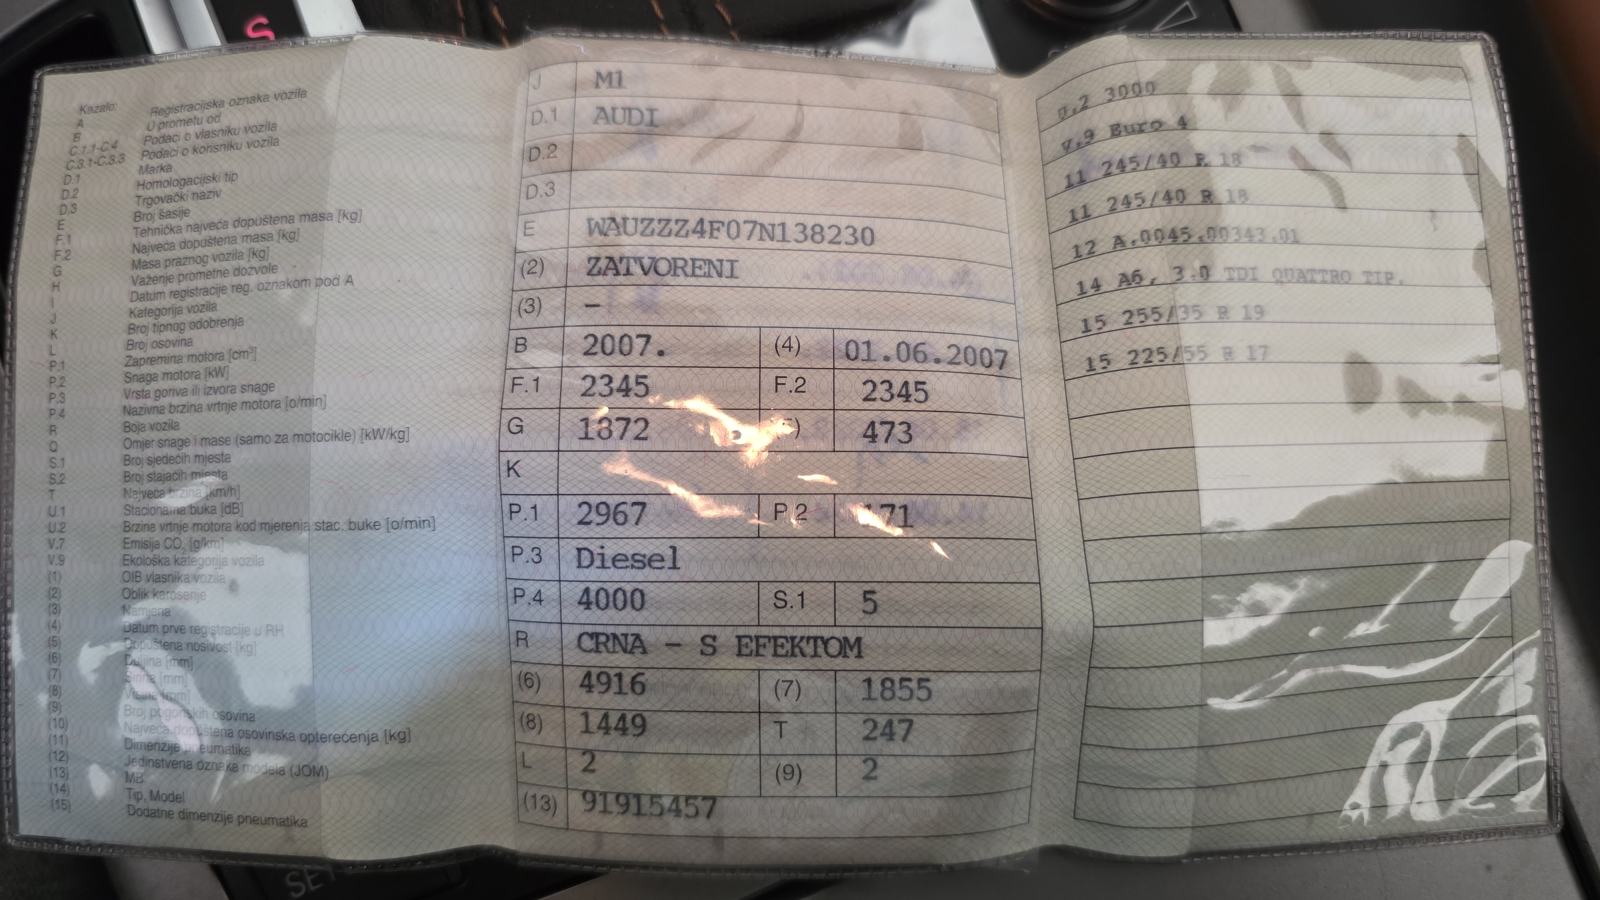 S
Kazalo:
A Registracijska oznaka vozila
B U prometu od
C.1.1-C.4 Podaci o vlasniku vozila
C.3.1-C.3.3 Podaci o korisniku vozila
D.1 Marka
D.2 Homologacijski tip
D.3 Trgovački naziv
E Broj šasije
F.1 Tehnička najveća dopuštena masa [kg]
F.2 Najveća dopuštena masa [kg]
G Masa praznog vozila [kg]
H Važenje prometne dozvole
I Datum registracije reg. oznakom pod A
J Kategorija vozila
K Broj tipnog odobrenja
L Broj osovina
P.1 Zapremina motora [cm³]
P.2 Snaga motora [kW]
P.3 Vrsta goriva ili izvora snage
P.4 Nazivna brzina vrtnje motora [o/min]
R Boja vozila
Q Omjer snage i mase (samo za motocikle) [kW/kg]
S.1 Broj sjedećih mjesta
S.2 Broj stajaćih mjesta
T Najveća brzina [km/h]
U.1 Stacionarna buka [dB]
U.2 Brzina vrtnje motora kod mjerenja stac. buke [o/min]
V.7 Emisija CO₂ [g/km]
V.9 Ekološka kategorija vozila
(1) OIB vlasnika vozila
(2) Oblik karoserije
(3) Namjena
(4) Datum prve registracije u RH
(5) Dopuštena nosivost [kg]
(6) Duljina [mm]
(7) Širina [mm]
(8) Visina [mm]
(9) Broj pogonskih osovina
(10) Najveća dopuštena osovinska opterećenja [kg]
(11) Dimenzije pneumatika
(12) Jedinstvena oznaka modela (JOM)
(13) MB
(14) Tip, Model
(15) Dodatne dimenzije pneumatika
J M1
D.1 AUDI
D.2
D.3
E WAUZZZ4F07N138230
(2) ZATVORENI
(3) –
B 2007. (4) 01.06.2007
F.1 2345 F.2 2345
G 1872 473
K
P.1 2967 P.2 171
P.3 Diesel
P.4 4000 S.1 5
R CRNA - S EFEKTOM
(6) 4916 (7) 1855
(8) 1449 T 247
L 2 (9) 2
(13) 91915457
3000
V.9 Euro 4
11 245/40 R 18
11 245/40 R 18
12 A.0045.00343.01
14 A6, 3.0 TDI QUATTRO TIP.
15 255/35 R 19
15 225/55 R 17
SET